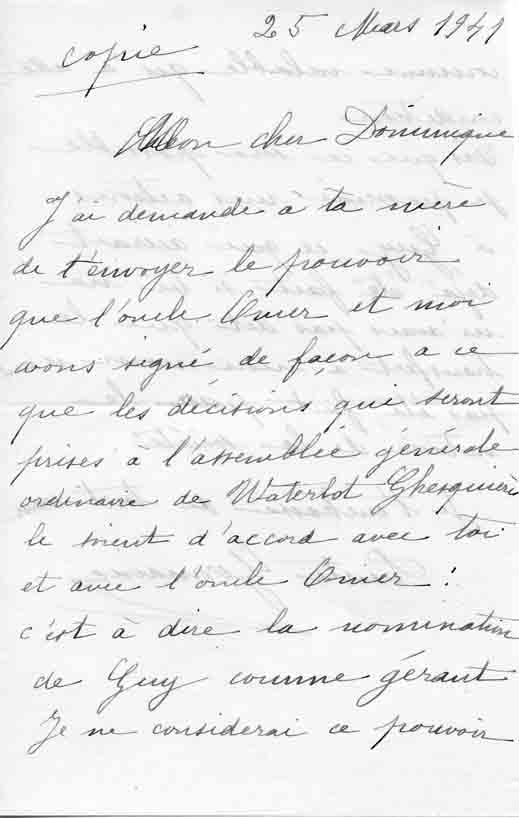 25 Mars 1941
copie
Mon cher Dominique
J'ai demande a ta mère
de t'envoyer le pouvoir
que l'oncle Omer et moi
avons signé de façon a ce
que les décisions qui seront
prises à l'assemblée générale
ordinaire de Waterlot Ghesquière
le soient d'accord avec toi
et avec l'oncle Omer :
c'est à dire la nomination
de Guy comme gérant
Je ne considerai ce pouvoir